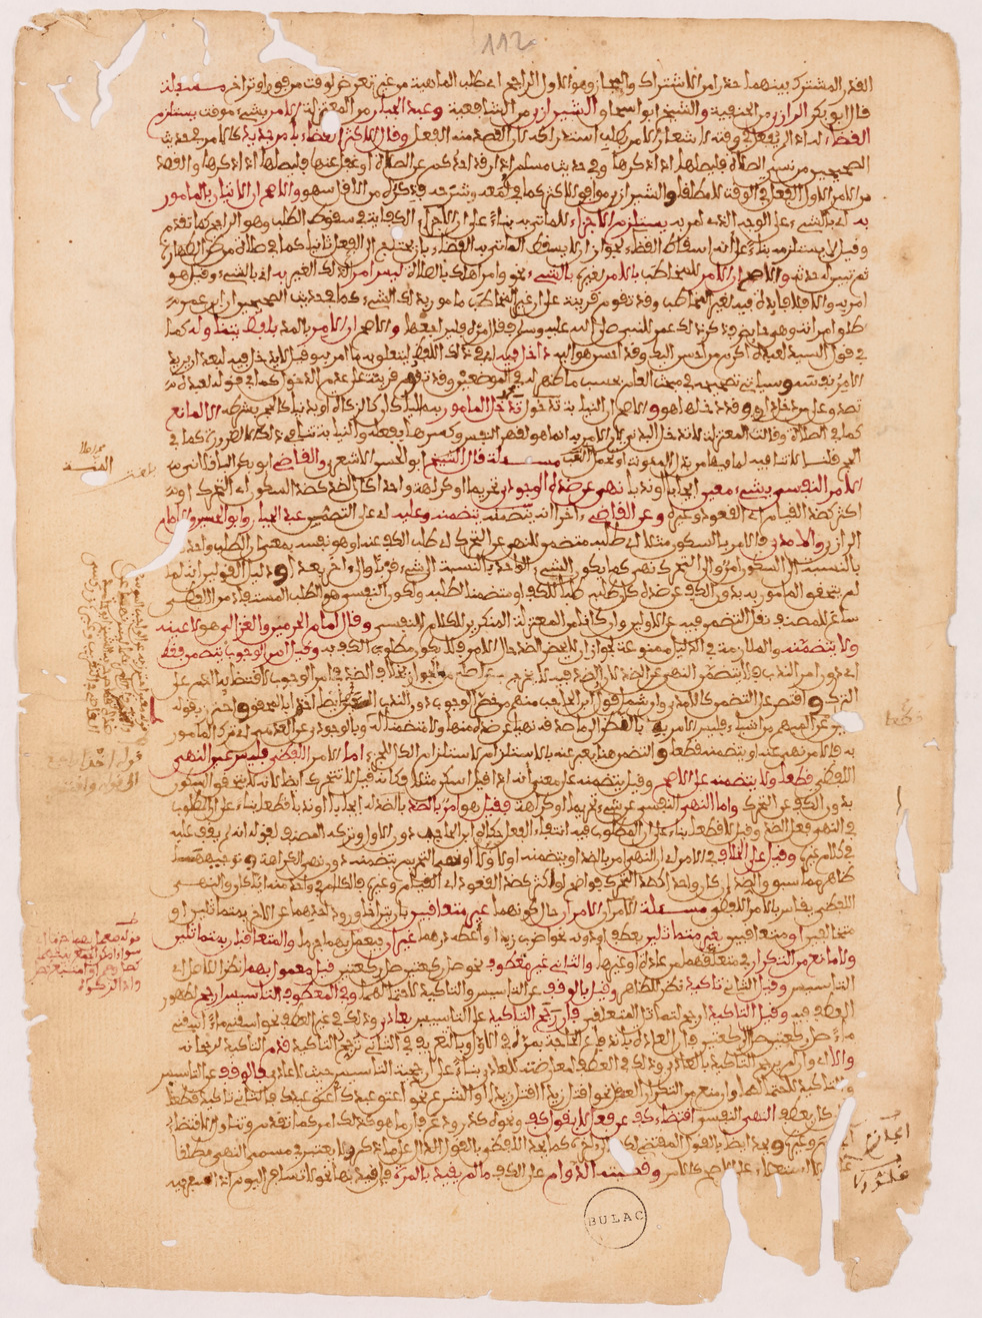 112
القدر المشترك بينهما حذرا من الاشتراك والمجاز وهو الاول الراجح اي طلب الماهية من غير تعرض لوقت من فور او تراخ مسئلة
قال ابو بكر الرازي من الحنفية والشيخ ابو اسحاق الشيرازي من الشافعية وعبد الجبار من المعتزلة الامر بشيء موقت يستلزم
القضاء له اذا لم يفعل في وقته لاشعار الامر بطلب استدراكه لان القصد منه الفعل وقال الاكثر القضاء بامر جديد كالامر في حديث
الصحيحين من نسي الصلاة فليصلها اذا ذكرها وفي حديث مسلم اذا رقد احدكم عن الصلاة او غفل عنها فليصلها اذا ذكرها والقصد
من الامر الاول الفعل في الوقت لا مطلقا والشيرازي موافق للاكثر كما في لمعه وشرحه فذكره من الاقل سهو والاصح ان الاتيان بالمامور
به اي بالشيء على الوجه الذي امر به يستلزم الاجزاء للماتي به بناء على ان الاجزاء الكفاية في سقوط الطلب وهو الراجح كما تقدم
وقيل لا يستلزمه بناء على انه اسقاط القضاء لجواز ان لا يسقط الماتي به القضاء بان يحتاج الى الفعل ثانيا كما في صلاة من ظن الطهارة
ثم تبين له حدثه والاصح ان الامر للمخاطب بالامر لغيره بالشيء نحو وامر اهلك بالصلاة ليس امرا لذلك الغير به اي بالشيء وقيل هو
امر به والا فلا فايدة فيه لغير المخاطب وقد تقوم قرينة على ان غير المخاطب مامور بذلك الشيء كما في حديث الصحيحين ان ابن عمر
طلق امراته وهي حايض فذكر ذلك عمر للنبي صلى الله عليه وسلم فقال مره فليراجعها والاصح ان الامر بالمد بلفظ يتناوله كما
في قول السيد لعبده اكرم من احسن اليك وقد احسن هو اليه داخل فيه اي في ذلك اللفظ ليتعلق به ما امر به وقيل لا يدخل فيه لبعد ان يريد
الامر نفسه وسياتي تصحيحه في مبحث العام بحسب ما ظهر له في الموضعين وقد تقوم قرينة على عدم الدخول كما في قوله لعبده
تصدق على من دخل داري وقد دخلها هو والاصح ان النيابة تدخل المامور به ماليا كان كالزكاة او بدنيا كالحج بشرطه الا لمانع
كما في الصلاة وقالت المعتزلة لا تدخل البدني لان الامر به انما هو لقهر النفس وكسرها بفعله والنيابة تنافي ذلك الا لضرورة كما في
الحج قلنا لا تنافيه لما فيها من بذل المئونة او تحمل المنة مسئلة قال الشيخ ابو الحسن الاشعري والقاضي ابو بكر الباقلاني
الامر النفسي بشيء معين ايجابا او ندبا نهي عن ضده الوجودي تحريما او كراهة واحدا كان الضد كضد السكون اي التحرك او
اكثر كضد القيام اي القعود وغيره وعن القاضي ءاخرا انه يتضمنه وعليه اي على التضمن عبد الجبار وابو الحسين والامام
الرازي والامدي فالامر بالسكون مثلا اي طلبه متضمن للنهي عن التحرك اي طلب الكف عنه او هو نفسه بمعنى ان الطلب واحد
بالنسبة الى السكون امر والى التحرك نهي كما يكون الشيء الواحد بالنسبة الى شيء قربا والى ءاخر بعدا ودليل القولين انه لما
لم يتحقق المامور به بدون الكف عن ضده كان طلبه طلبا للكف او متضمنا لطلبه ولكون النفسي هو الطلب المستفاد من اللفظي
ساغ للمصنف نقل التضمن فيه عن الاولين وان كانا من المعتزلة المنكرين للكلام النفسي وقال امام الحرمين والغزالي هو لا عينه
ولا يتضمنه والملازمة في الدليل ممنوعة لجواز ان لا يحضر الضد حال الامر فلا يكون مطلوب الكف به وقيل امر الوجوب يتضمن فقط
اي دون امر الندب فلا يتضمن النهي عن الضد لان الضد فيه لا يخرج به عن اصله من الجواز بخلاف الضد في امر الوجوب لاقتضائه الذم على
الترك واقتصر على التضمن كالامدي وان شمل قول ابن الحاجب منهم من خص الوجوب دون الندب العين ايضا اخذا بالمحقق واحترز بقوله
معين عن المبهم من اشياء فليس الامر به بالنظر الى ما صدقه نهيا عن ضده منها ولا متضمنا له وبالوجودي عن العدمي اي ترك المامور
به فالامر نهي عنه او يتضمنه قطعا والتضمن هنا يعبر عنه بالاستلزام لاستلزام الكل للجزء اما الامر اللفظي فليس عين النهي
اللفظي قطعا ولا يتضمنه على الاصح وقيل يتضمنه على معنى انه اذا قيل اسكن مثلا فكانه قيل لا تتحرك ايضا لانه لا يتحقق السكون
بدون الكف عن التحرك واما النهي النفسي عن شيء تحريما او كراهة فقيل هو امر بالضد له ايجابا او ندبا قطعا بناء على ان المطلوب
في النهي فعل الضد وقيل لا قطعا بناء على ان المطلوب فيه انتفاء الفعل حكاه ابن الحاجب دون الاول وتركه المصنف لقوله انه لم يقف عليه
في كلام غيره وقيل على الخلاف في الامر اي ان النهي امر بالضد او يتضمنه او لا ولا او نهي التحريم يتضمنه دون نهي الكراهة وتوجيهها
ظاهر مما سبق والضد ان كان واحدا كضد التحرك فواضح او اكثر كضد القعود اي القيام وغيره فالكلام في واحد منه ايا كان والنهي
اللفظي يقاس بالامر اللفظي مسئلة الامران حال كونهما غير متعاقبين بان يتراخى ورود احدهما عن الاخر بمتماثلين او
متخالفين او متعاقبين بغير متماثلين بعطف او دونه نحو اضرب زيدا واعطه درهما غيران فيعمل بهما جزما والمتعاقبان بمتماثلين
ولا مانع من التكرار في متعلقهما من عادة او غيرها والثاني غير معطوف نحو صل ركعتين صل ركعتين قيل معمول بهما نظرا للاصل اي
التاسيس وقيل الثاني تاكيد نظرا للظاهر وقيل بالوقف عن التاسيس والتاكيد لاحتمالهما وفي المعطوف التاسيس ارجح لظهور
العطف فيه وقيل التاكيد ارجح لتماثل المتعاقبين فان رجح التاكيد على التاسيس بعادي وذلك في غير العطف نحو اسقني ماء اسقني
ماء صل ركعتين صل الركعتين فان العادة باندفاع الحاجة بمرة في الاول وبالتعريف في الثاني ترجح التاكيد قدم التاكيد لرجحانه
والا اي وان لم يرجح التاكيد بالعادي وذلك في العطف لمعارضته للعادي بناء على ارجحية التاسيس حيث لا عادي فالوقف عن التاسيس
والتاكيد لاحتمالهما وان منع من التكرار العقل نحو اقتل زيدا اقتل زيدا او الشرع نحو اعتق عبدك اعتق عبدك فالثاني تاكيد قطعا
وان كان بعطف النهي النفسي اقتضاء كف عن فعل لا بقول كف ونحوه كذر ودع فان ما هو كذلك امر كما تقدم وتناول الاقتضاء
الجازم وغيره ويحد ايضا بالقول المقتضي لكف الى اخره كما يحد اللفظي بالقول الدال على ما ذكر ولا يعتبر في مسمى النهي مطلقا
علو ولا استعلاء على الاصح كالامر وقضيته الدوام على الكف ما لم يقيد بالمرة فان قيد بها نحو لا تسافر اليوم
الجازم
BULAC